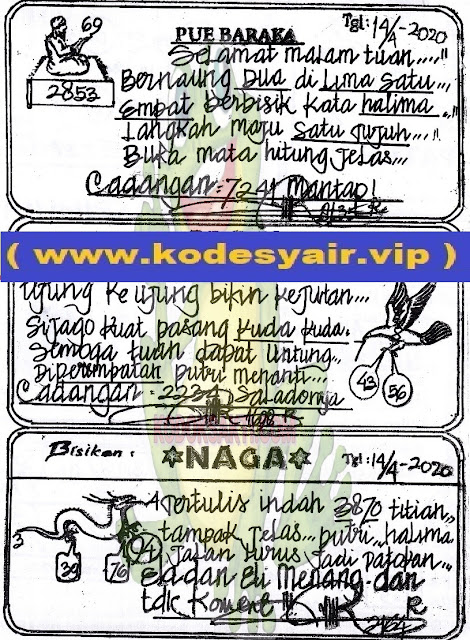 69
2853
PUE BARAKA
Tgl: 14/4-2020
Selamat malam tuan....''
Bernaung Dua di Lima satu...
Empat berbisik kata halima
Langkah maju satu tujuh...''
Buka mata hitung jelas...
Cadangan: 7241 Mantap!
R
( www.kodesyair.vip )
Ujung ke ujung bikin kejutan...
Sijago kuat pasang kuda kuda.
Semoga tuan dapat untung..
Diperempatan putri menanti...
Cadangan: 2234
R
43
56
Bisikan:
NAGA
Tgl: 14/4-2020
Tertulis indah 3870 titian,,
tampak jelas... putri... halima
Jalan lurus jadi patokan...
dan
tdk
3
39
76
R